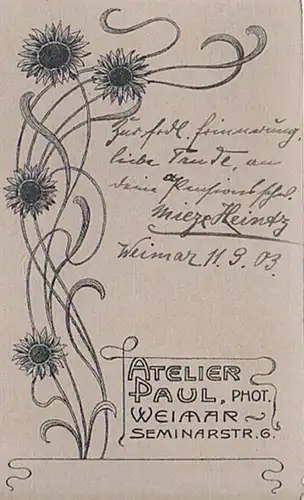 Zur frdl. Erinnerung,
liebe Trude, an
deine Pensionsschw.
Mieze Heintz
Weimar 11.9.03.
ATELIER
PAUL, PHOT.
WEIMAR
SEMINARSTR. 6.